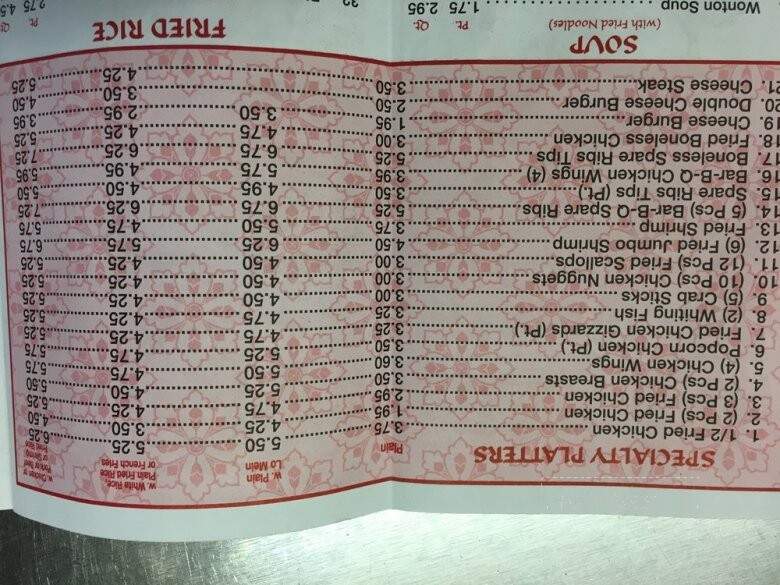 SPECIALTY PLATTERS
Plain
w. Plain
Lo Mein
w. White Rice,
Plain Fried Rice
or French Fries
w. Chicken
Pork or Beef
or Shrimp
Fried Rice
1. 1/2 Fried Chicken 3.75 5.50 5.25 6.25
2. (2 Pcs) Fried Chicken 1.95 4.25 3.50 4.50
3. (3 Pcs) Fried Chicken 2.95 4.75 4.25 5.25
4. (2 Pcs) Chicken Breasts 3.50 5.25 4.50 5.50
5. (4) Chicken Wings 3.60 4.50 4.75 5.75
6. Popcorn Chicken (Pt.) 3.50 5.25 4.75 5.75
7. Fried Chicken Gizzards (Pt.) 3.25 4.50 4.25 5.25
8. (2) Whiting Fish 3.25 4.75 4.25 5.25
9. (5) Crab Sticks 3.00 4.50 4.25 5.25
10. (10 Pcs) Chicken Nuggets 3.00 4.50 4.25 5.25
11. (12 Pcs) Fried Scallops 3.00 4.50 4.25 5.25
12. (6) Fried Jumbo Shrimp 4.50 6.25 5.75 6.75
13. Fried Shrimp 3.75 5.50 4.75 5.75
14. (5 Pcs) Bar-B-Q Spare Ribs 5.25 6.75 6.25 7.25
15. Spare Ribs Tips (Pt.) 3.50 4.95 4.50 5.50
16. Bar-B-Q Chicken Wings (4) 3.95 5.75 4.95 5.95
17. Boneless Spare Ribs Tips 5.25 6.75 6.25 7.25
18. Fried Boneless Chicken 3.00 4.75 4.25 5.25
19. Cheese Burger 1.95 3.50 2.95 3.95
20. Double Cheese Burger 2.50 3.50 4.50
21. Cheese Steak 3.50 4.25 5.25
SOUP
(with Fried Noodles) Pt. Qt.
Wonton Soup 1.75 2.95
FRIED RICE
Pt. Qt.
32. 2.75